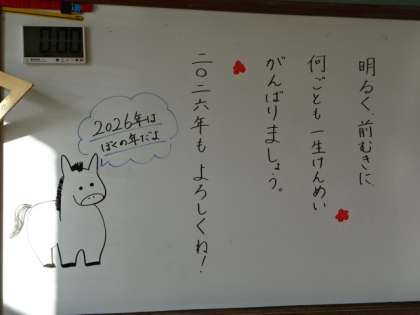 明るく、前むきに
何ごとも一生けんめい
がんばりましょう。
二〇二六年も よろしくね！
2026年は
ぼくの年だよ
0:00